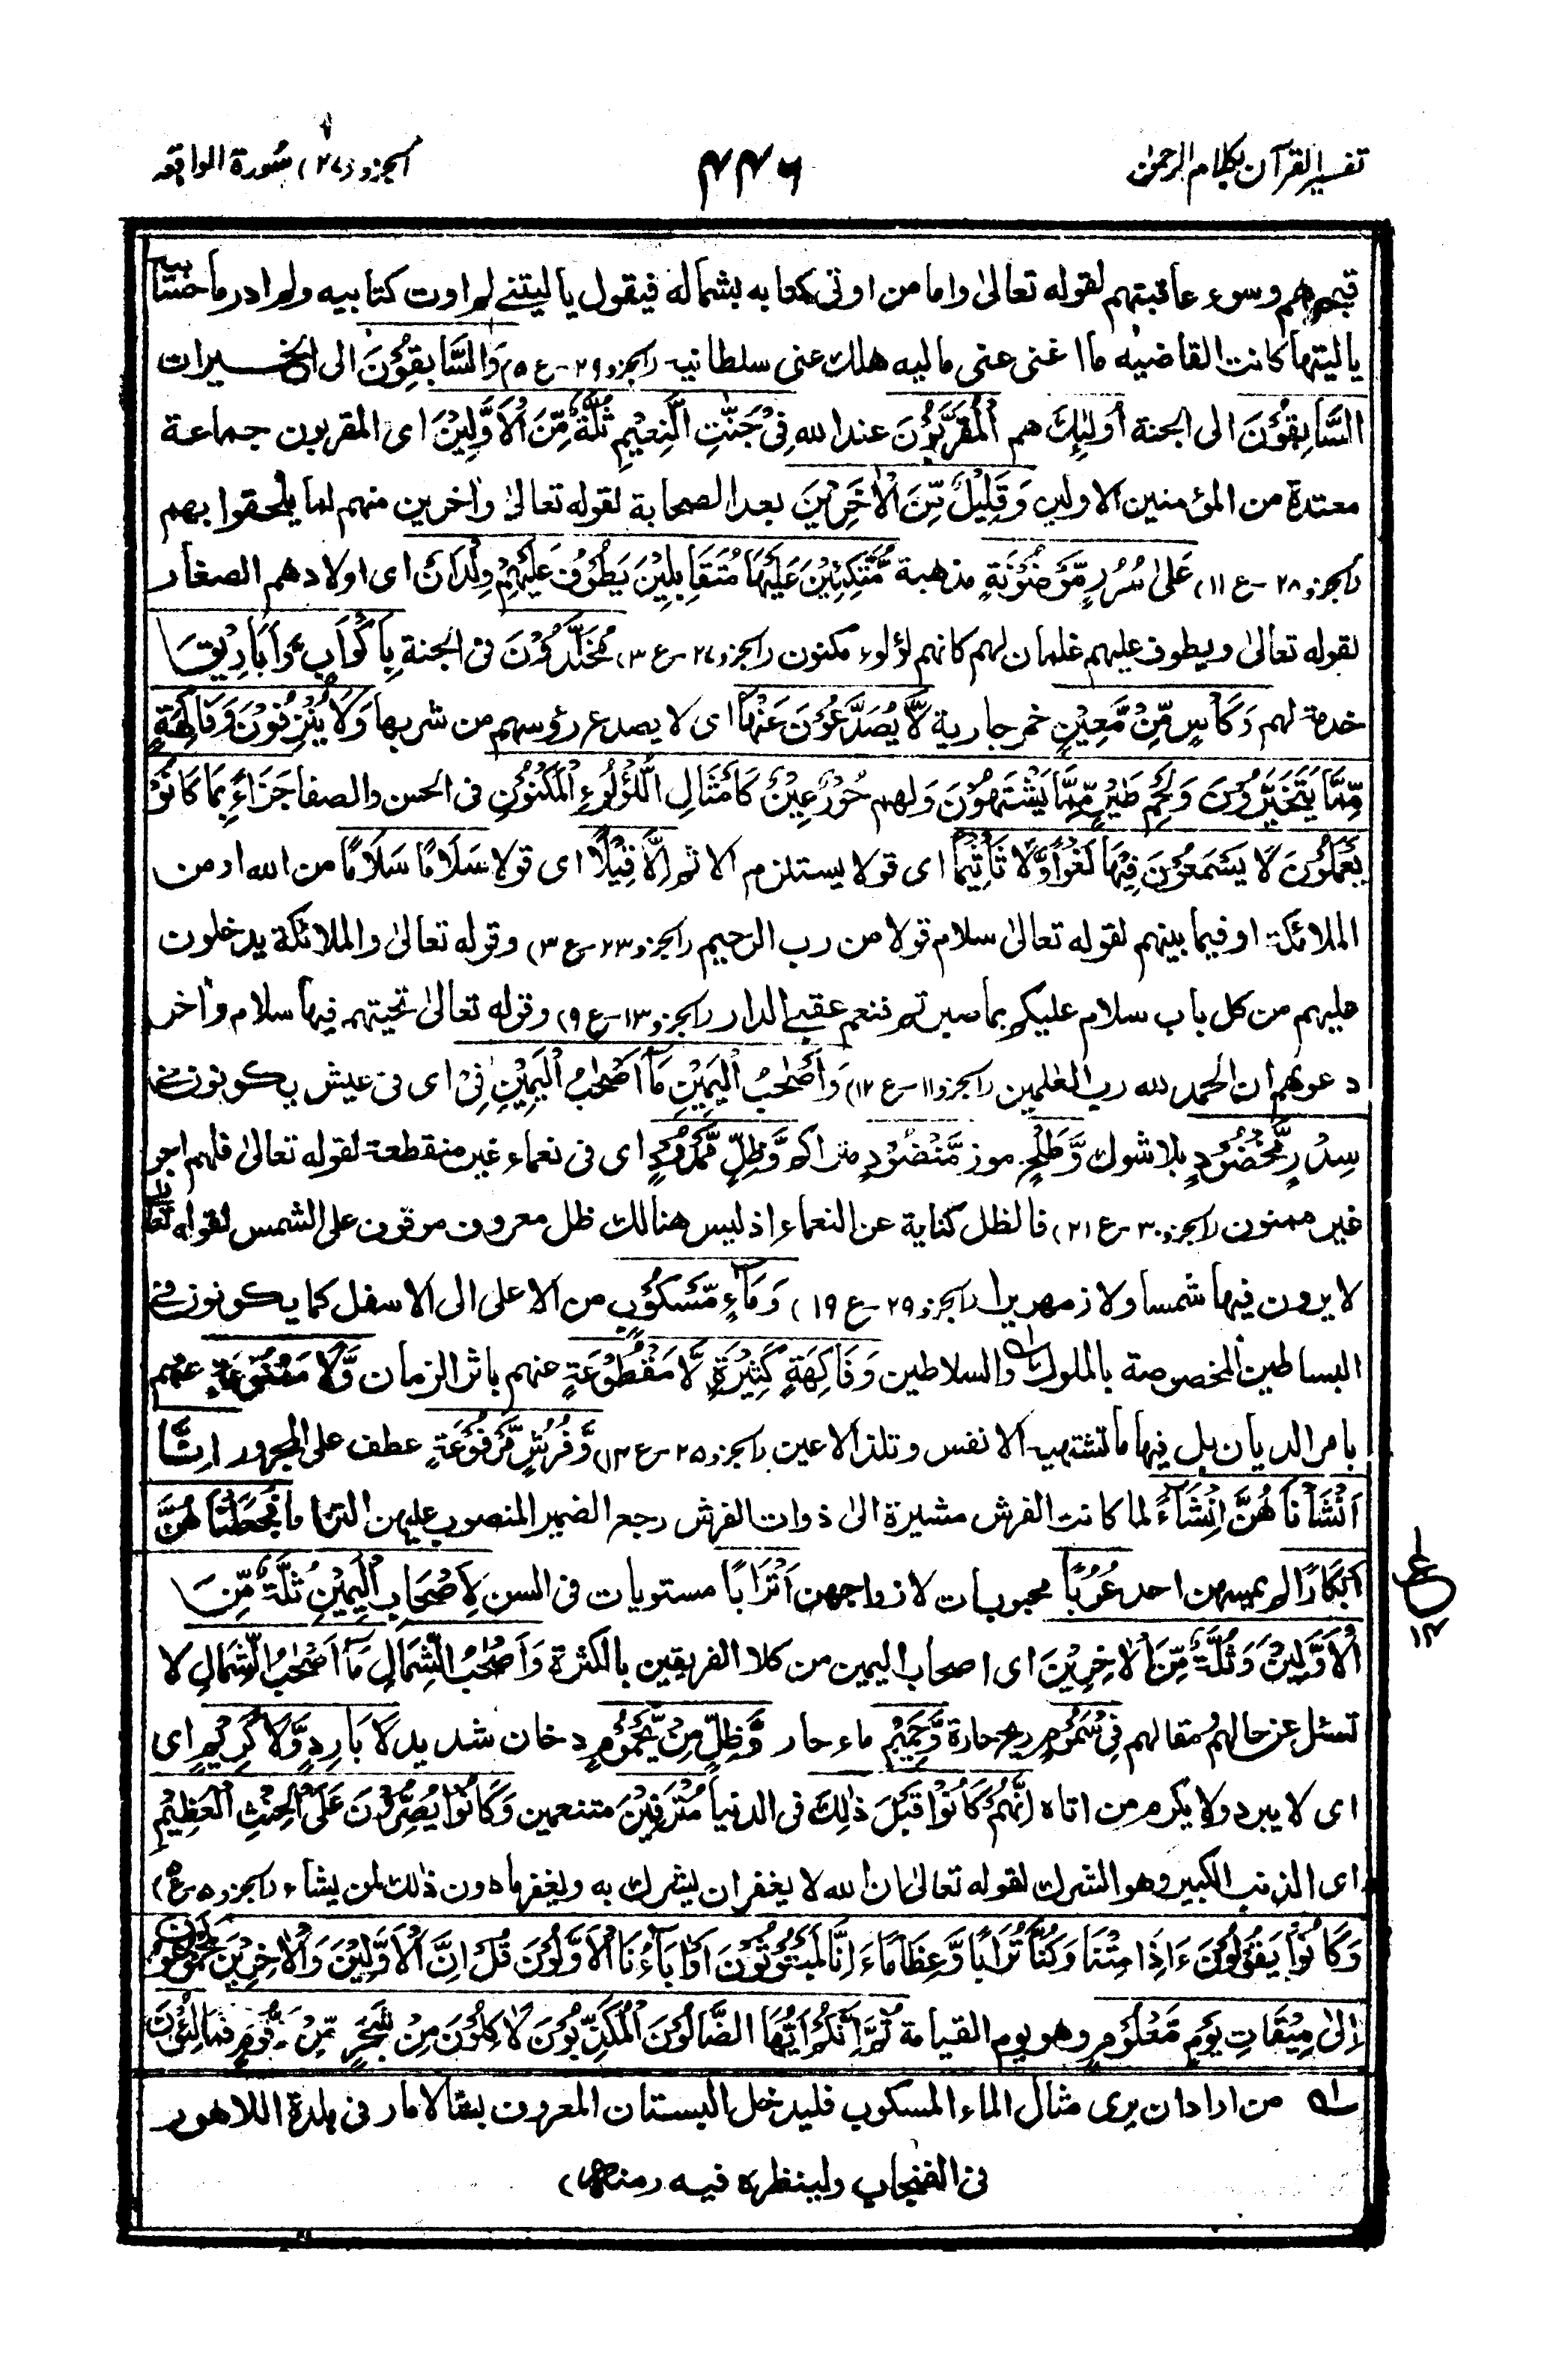 تفسير القرآن بكلام الرحمٰن
۴۴۶
الجزو (۲۷) سُورة الواقعه
قبحهم وسوء عاقبتهم لقوله تعالىٰ واما من اوتى كتابه بشماله فيقول يا ليتنے لم اوت كتابيه ولم ادر ما حسابيه
يا ليتها كانت القاضيه ما اغنى عنى ماليه هلك عنى سلطانيه (الجزو ۲۹-ع ۵) وَالسَّابِقُوْنَ الى الخيرات
السَّابِقُوْنَ الى الجنة اُولٰٓئِكَ هم الْمُقَرَّبُوْنَ عند الله فِىْ جَنّٰتِ النَّعِيْمِ ثُلَّةٌ مِّنَ الْاَوَّلِيْنَ اى المقربون جماعة
معتدة من المؤمنين الاولين وَقَلِيْلٌ مِّنَ الْاٰخَرِيْنَ بعد الصحابة لقوله تعالىٰ واٰخرين منهم لما يلحقوا بهم
(الجزو ۲۸-ع ۱۱) عَلىٰ سُرُرٍ مَّوْضُوْنَةٍ مذهبة مُّتَّكِئِيْنَ عَلَيْهَا مُتَقَابِلِيْنَ يَطُوْفُ عَلَيْهِمْ وِلْدَانٌ اى اولادهم الصغار
لقوله تعالىٰ ويطوف عليهم غلمان لهم كانهم لؤلوء مكنون (الجزو ۲۷-ع ۳) مُّخَلَّدُوْنَ فى الجنة بِاَكْوَابٍ وَّاَبَارِيْقَ
خدمة لهم وَكَاْسٍ مِّنْ مَّعِيْنٍ خمر جارية لَّا يُصَدَّعُوْنَ عَنْهَا اى لا يصدع رؤسهم من شربها وَلَا يُنْزِفُوْنَ وَفَاكِهَةٍ
مِّمَّا يَتَخَيَّرُوْنَ وَلَحْمِ طَيْرٍ مِّمَّا يَشْتَهُوْنَ ولهم حُوْرٌ عِيْنٌ كَاَمْثَالِ اللُّؤْلُوءِ الْمَكْنُوْنِ فى الحسن والصفا جَزَاءً بِمَا كَانُوْا
يَعْمَلُوْنَ لَا يَسْمَعُوْنَ فِيْهَا لَغْوًا وَّلَا تَاْثِيْمًا اى قولا يستلزم الاثم اِلَّا قِيْلًا اى قولا سَلَامًا سَلَامًا من الله او من
الملائكة او فيما بينهم لقوله تعالىٰ سلام قولا من رب الرحيم (الجزو ۲۳-ع ۳) وقوله تعالىٰ والملائكة يدخلون
عليهم من كل باب سلام عليكم بما صبرتم فنعم عقبے الدار (الجزو ۱۳-ع ۹) وقوله تعالىٰ تحيتهم فيها سلام واٰخر
دعوٰهم ان الحمد لله رب العٰلمين (الجزو ۱۱-ع ۱۲) وَاَصْحٰبُ الْيَمِيْنِ مَا اَصْحٰبُ الْيَمِيْنِ فِىْ اى فى عيش يكونون فى
سِدْرٍ مَّخْضُوْدٍ بلا شوك وَّطَلْحٍ موز مَّنْضُوْدٍ متراكم وَّظِلٍّ مَّمْدُوْدٍ اى فى نعماء غير منقطعة لقوله تعالىٰ فلهم اجر
غير ممنون (الجزو ۳۰-ع ۲۱) فالظل كناية عن النعماء اذ ليس هنالك ظل معروف موقوف على الشمس لقوله تعالىٰ
لا يرون فيها شمسا ولا زمهريرا (الجزو ۲۹-ع ۱۹) وَمَاءٍ مَّسْكُوْبٍ من الاعلى الى الاسفل كما يكونون فى
البساطين المخصوصة بالملوك والسلاطين وَفَاكِهَةٍ كَثِيْرَةٍ لَّا مَقْطُوْعَةٍ عنهم باثر الزمان وَّلَا مَمْنُوْعَةٍ عنهم
بامر الديان بل فيها ما تشتهيه الانفس وتلذ الاعين (الجزو ۲۵-ع ۱۳) وَّفُرُشٍ مَّرْفُوْعَةٍ عطف على المجرور اِنَّا
اَنْشَاْنَاهُنَّ اِنْشَاءً لما كانت الفرش مشيرة الىٰ ذوات الفرش رجع الضمير المنصوب عليهن التزاما فَجَعَلْنَاهُنَّ
اَبْكَارًا لم يمسهن احد عُرُبًا محبوبات لازواجهن اَتْرَابًا مستويات فى السن لِاَصْحَابِ الْيَمِيْنِ ثُلَّةٌ مِّنَ
الْاَوَّلِيْنَ وَثُلَّةٌ مِّنَ الْاٰخِرِيْنَ اى اصحاب اليمين من كلا الفريقين بالكثرة وَاَصْحٰبُ الشِّمَالِ مَا اَصْحٰبُ الشِّمَالِ لا
تسئل عن حالهم ومقالهم فِىْ سَمُوْمٍ ريح حارة وَّحَمِيْمٍ ماء حار وَّظِلٍّ مِنْ يَّحْمُوْمٍ دخان شديد لَا بَارِدٍ وَّلَا كَرِيْمٍ اى
اى لا يبرد ولا يكرم من اتاه اِنَّهُمْ كَانُوْا قَبْلَ ذٰلِكَ فى الدنيا مُتْرَفِيْنَ متنعمين وَكَانُوْا يُصِرُّوْنَ عَلَى الْحِنْثِ الْعَظِيْمِ
اى الذنب الكبير وهو الشرك لقوله تعالىٰ ان الله لا يغفر ان يشرك به ويغفر ما دون ذٰلك لمن يشاء (الجزو ۵-ع ۴)
وَكَانُوْا يَقُوْلُوْنَ ءَاِذَا مِتْنَا وَكُنَّا تُرَابًا وَّعِظَامًا ءَاِنَّا لَمَبْعُوْثُوْنَ اَوَاٰبَآءُنَا الْاَوَّلُوْنَ قُلْ اِنَّ الْاَوَّلِيْنَ وَالْاٰخِرِيْنَ لَمَجْمُوْعُوْنَ
اِلىٰ مِيْقَاتِ يَوْمٍ مَّعْلُوْمٍ وهو يوم القيامة ثُمَّ اِنَّكُمْ اَيُّهَا الضَّالُّوْنَ الْمُكَذِّبُوْنَ لَاٰكِلُوْنَ مِنْ شَجَرٍ مِّنْ زَقُّوْمٍ فَمَالِئُوْنَ
ع
۱۴
له من اراد ان يرى مثال الماء المسكوب فليدخل البستان المعروف بشالامار فى بلدة اللاهور
فى الفنجاب ولينظره فيه (منه)